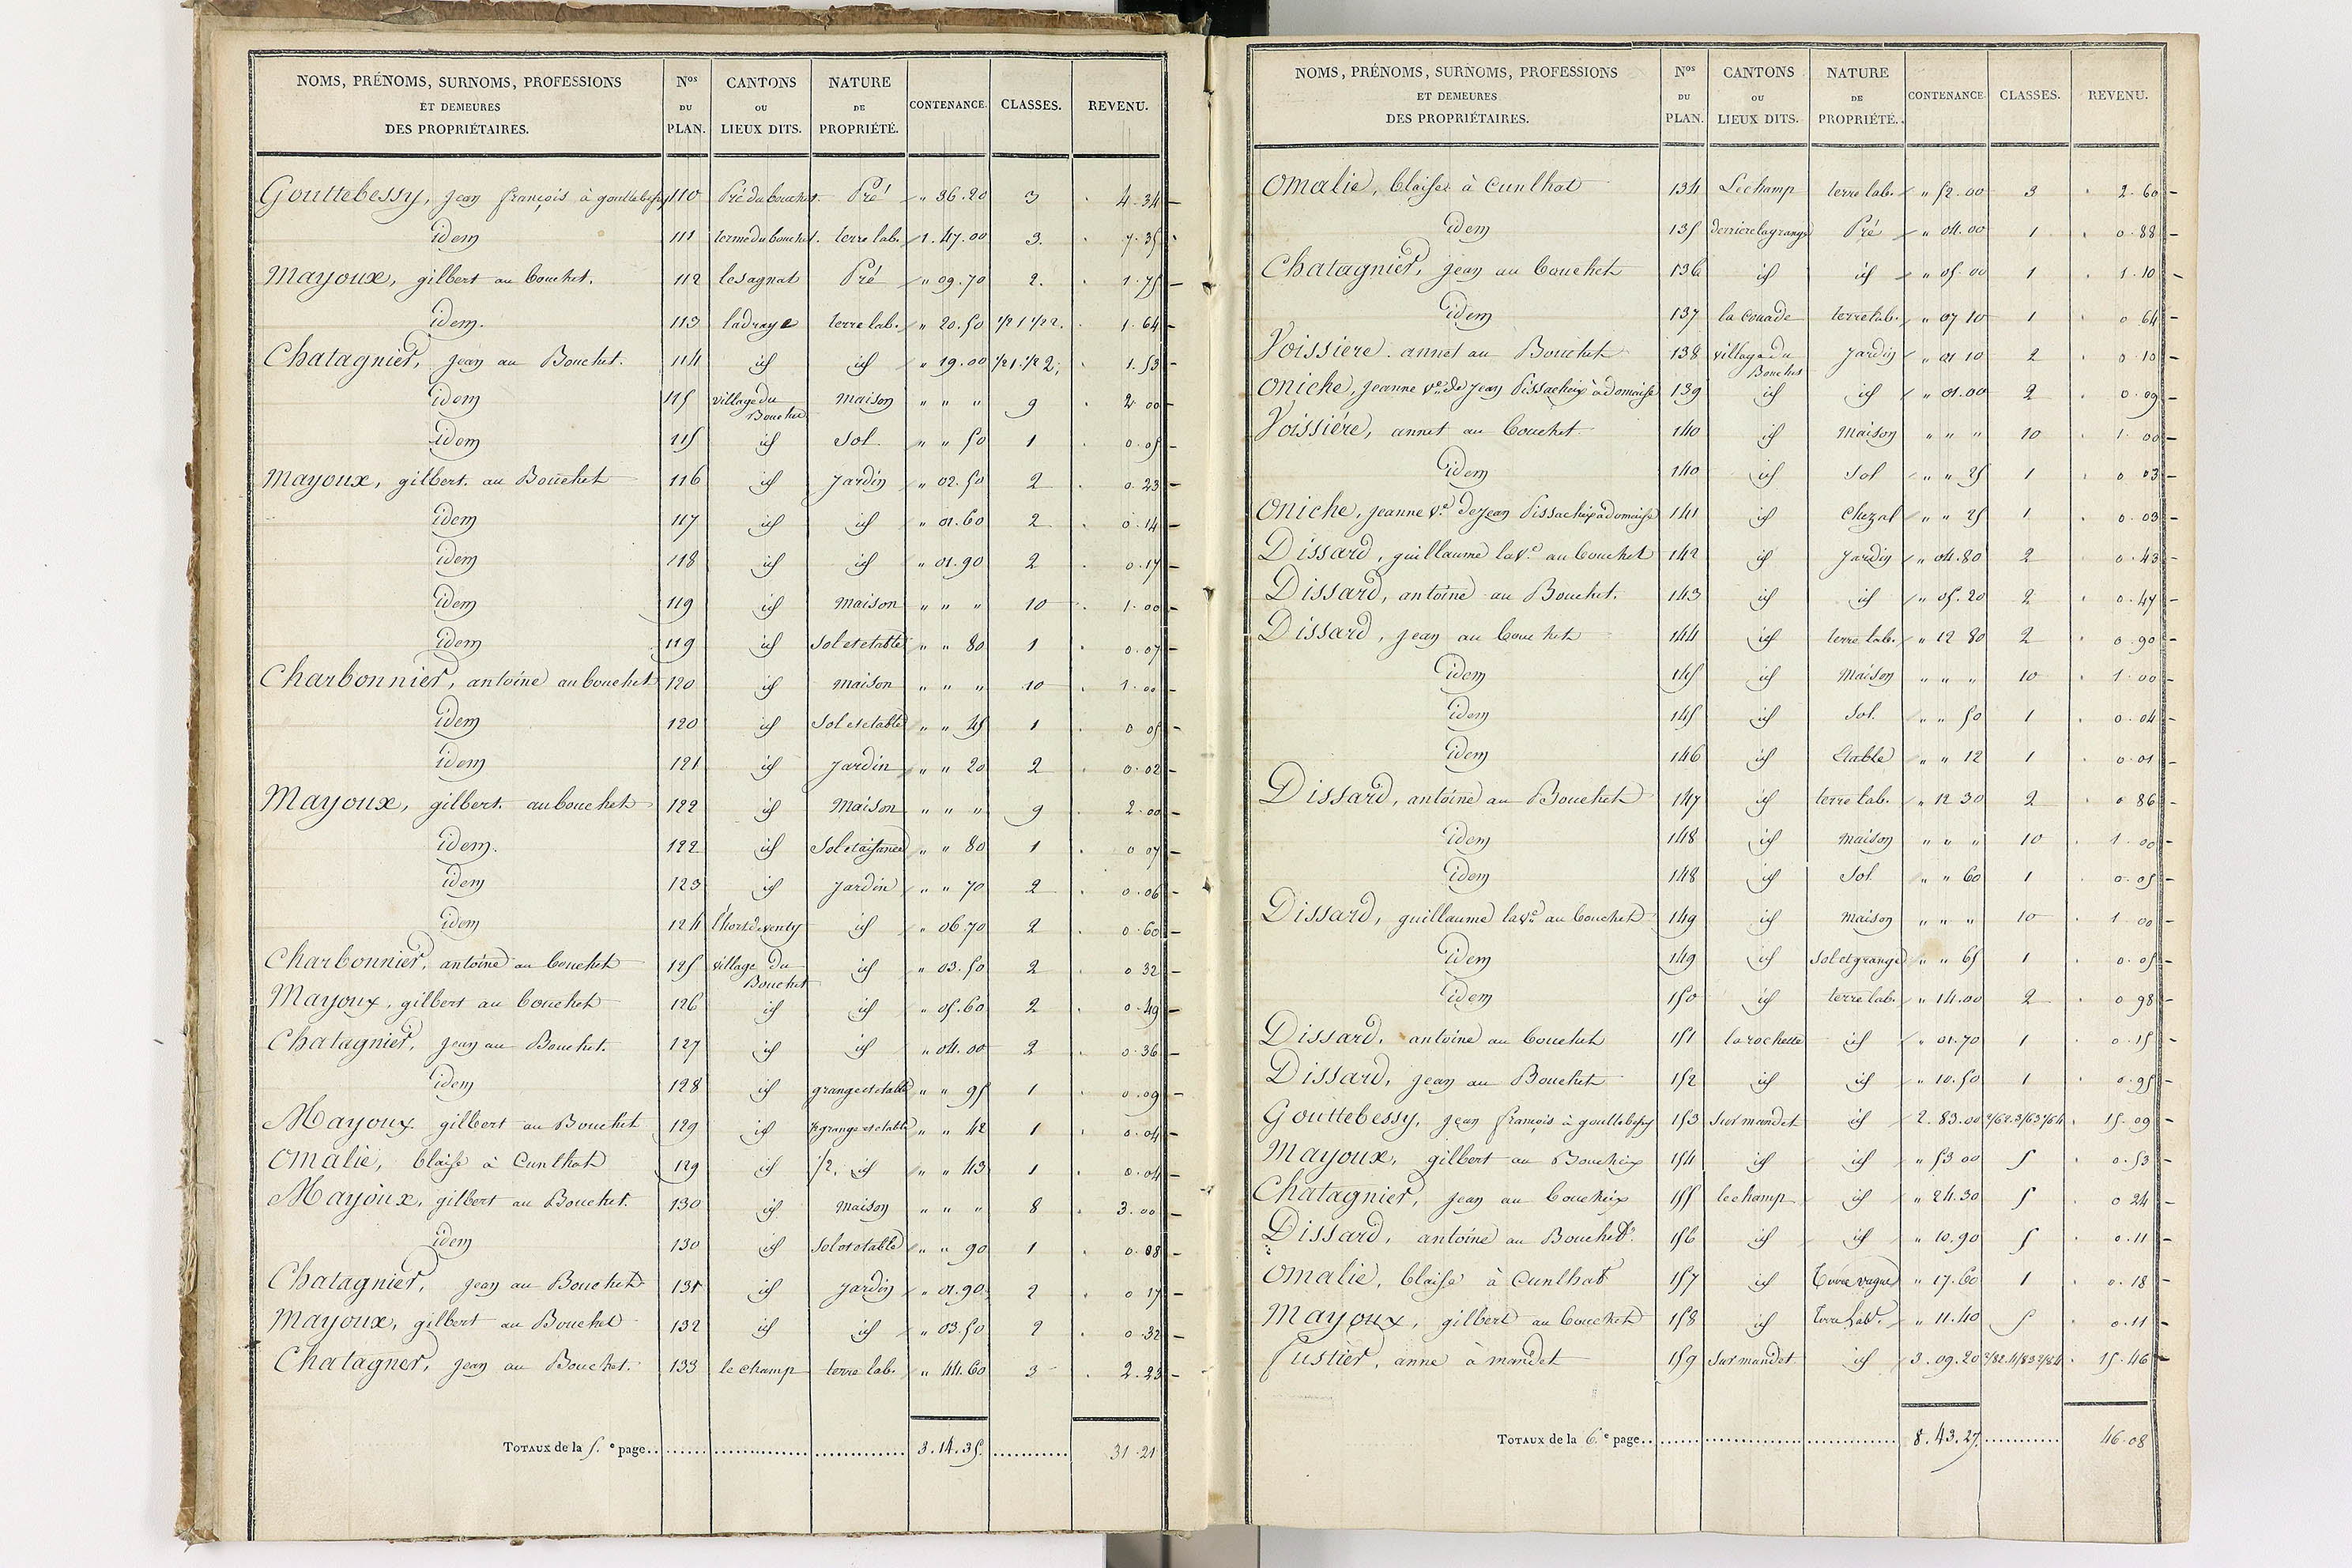 NOMS, PRÉNOMS, SURNOMS, PROFESSIONS ET DEMEURES DES PROPRIÉTAIRES. Nos DU PLAN. CANTONS OU LIEUX DITS. NATURE DE PROPRIÉTÉ. CONTENANCE. CLASSES. REVENU.
Gouttebessy, jean françois à gouttebessy 110 Pré du bouchet. Pré " 36.20 3 4.34
idem 111 terme du bouchet. terre lab. 1.47.00 3. 7.35
Mayoux, gilbert au bouchet. 112 lesagnat Pré " 09.70 2. 1.75
idem. 113 ladraye terre lab. " 20.50 1/2 1 1/2 2. 1.64
Chatagnier, jean au Bouchet. 114 id id " 19.00 1/2 1. 1/2 2; 1.53
idem 115 village du Bouchet Maison " " " 9 2 00
idem 115 id Sol " " 50 1 0.05
Mayoux, gilbert. au Bouchet 116 id Jardin " 02.50 2 0.23
idem 117 id id " 01.60 2 0.14
idem 118 id id " 01.90 2 0.17
idem 119 id Maison " " " 10 1.00
idem 119 id Sol et etable " " 80 1 0.07
Charbonnier, antoine au bouchet 120 id Maison " " " 10 1.00
idem 120 id Sol et etable " " 45 1 0 05
idem 121 id Jardin " " 20 2 0.02
Mayoux, gilbert. au bouchet 122 id Maison " " " 9 2.00
idem. 122 id Sol et aisance " " 80 1 0 07
idem 123 id Jardin " " 70 2 0.06
idem 124 id " 06.70 2 0.60
Charbonnier, antoine au bouchet 125 village du Bouchet id " 03.50 2 0 32
Mayoux, gilbert au bouchet 126 id id " 05.60 2 0.49
Chatagnier, jean au Bouchet. 127 id id " 04.00 2 0.36
idem 128 id grange et etable " " 95 1 0.09
Mayoux gilbert au Bouchet 129 id 1/2 grange et etable " " 42 1 0.04
Omalie, blaise à Cunlhat 129 id 1/2. id " " 43 1 0.04
Mayoux, gilbert au Bouchet. 130 id Maison " " " 8 3.00
idem 130 id Sol et etable " " 90 1 0.08
Chatagnier, jean au Bouchet 131 id Jardin " 01.90 2 0 17
Mayoux, gilbert au Bouchet 132 id id " 03.50 2 0.32
Chatagner, jean au Bouchet. 133 le champ terre lab. " 44.60 3 2.23
TOTAUX de la 5.e page 3.14.35. 31.21
NOMS, PRÉNOMS, SURNOMS, PROFESSIONS ET DEMEURES DES PROPRIÉTAIRES. Nos DU PLAN. CANTONS OU LIEUX DITS. NATURE DE PROPRIÉTÉ. CONTENANCE. CLASSES. REVENU.
Omalie, blaise à Cunlhat 134 Le champ terre lab. " 52.00 3 2.60
idem 135 derriere la grange Pré " 04.00 1 0.88
Chatagnier, jean au bouchet 136 id id " 05.00 1 1.10
idem 137 la couade terre lab. " 07 10 1 0 64
Voissiere. annet au Bouchet 138 village du Bouchet Jardin " 01 10 2 0 10
Oniche, jeanne ve. de jean Pissacheix à domaise 139 id id " 01.00 2 0.09
Voissière, annet au bouchet 140 id Maison " " " 10 1.00
idem 140 id Sol " " 25 1 0 03
Oniche, jeanne ve. de jean Pissacheix à domaise 141 id Chezal " " 25 1 0.03
Dissard, guillaume la ve. au bouchet 142 id Jardin " 04.80 2 0.43
Dissard, antoine au Bouchet. 143 id id " 05.20 2 0.47
Dissard, jean au bouchet 144 id terre lab. " 12 80 2 0.90
idem 145 id Maison " " " 10 1.00
idem 145 id Sol. " " 50 1 0.04
idem 146 id Etable " " 12 1 0.01
Dissard, antoine au Bouchet 147 id terre lab. " 12 30 2 0 86
idem 148 id Maison " " " 10 1.00
idem 148 id Sol " " 60 1 0.05
Dissard, guillaume la ve. au bouchet 149 id Maison " " " 10 1.00
idem 149 id Sol et grange " " 65 1 0.05
idem 150 id terre lab. " 14.00 2 0 98
Dissard, antoine au bouchet 151 la rochette id " 01.70 1 0.15
Dissard, jean au Bouchet 152 id id " 10.50 1 0.95
Gouttebessy, jean françois à gouttebessy 153 sur mandet id 2.83.00 2/6 2. 3/6 3 1/6 4 15.09
Mayoux, gilbert au Boucheix 154 id id " 53 00 5 0.53
Chatagnier, jean au boucheix 155 le champ id " 24.30 5 0 24
Dissard, antoine au Bouchet. 156 id id " 10.90 5 0.11
Omalie, blaise à Cunlhat 157 id Terre vague " 17.60 1 0.18
Mayoux, gilbert au bouchet 158 id Terre Lab. " 11.40 5 0.11
fustier, anne à mandet 159 sur mandet id 3.09.20 2/8 2. 4/8 3 2/8 4 15.46
TOTAUX de la 6.e page 8.43.27. 46.08